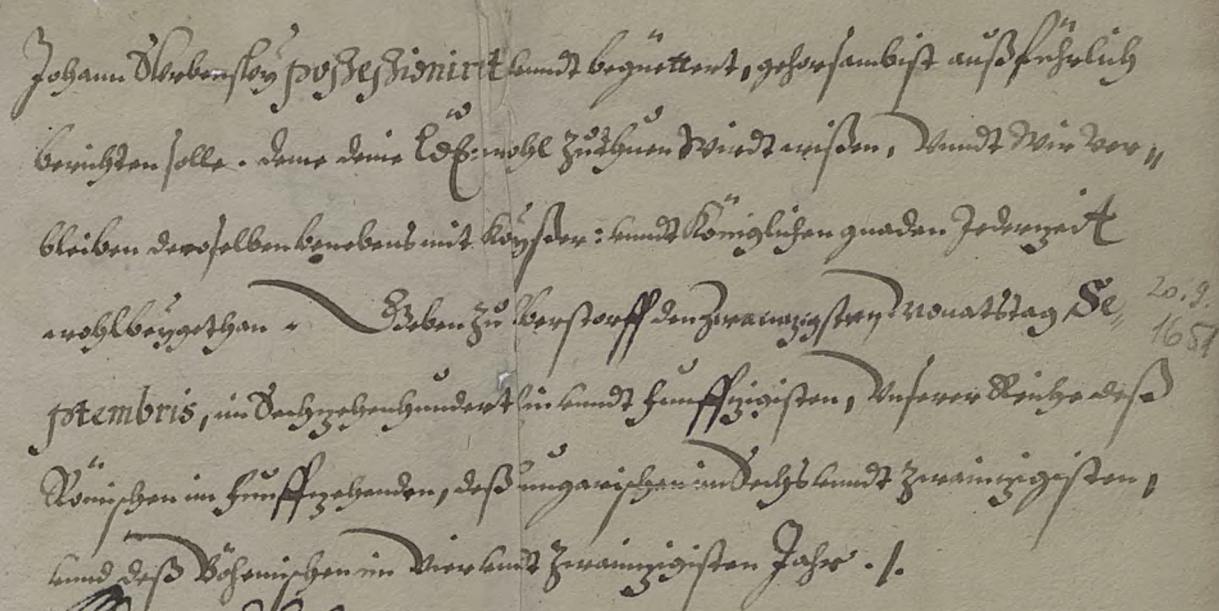 Johann Skrbenskÿ possessionirt vnndt begüettert, gehorsambist außführlich
berichten solle. deme deine Ldtꝛ: wohl zuthuen Wirdt wißen, Vnndt Wir ver„
bleiben deroselben benebens mit Kaÿßer: vnndt Königlichen gnaden Jederzeit
wohlbeÿgethan. Geben zu Eberstorff den zwainzigsten Monatstag Se„
ptembris, im Sechzehenhundert Ein vnndt funffzigisten, Vnserer Reiche deß
Römischen im funffzehenden, deß ungarischen im Sechs vnndt zwainzigisten,
vnnd deß Böhemischen im Vier vndt zwainzigisten Jahr ./.
20. 9.
1651